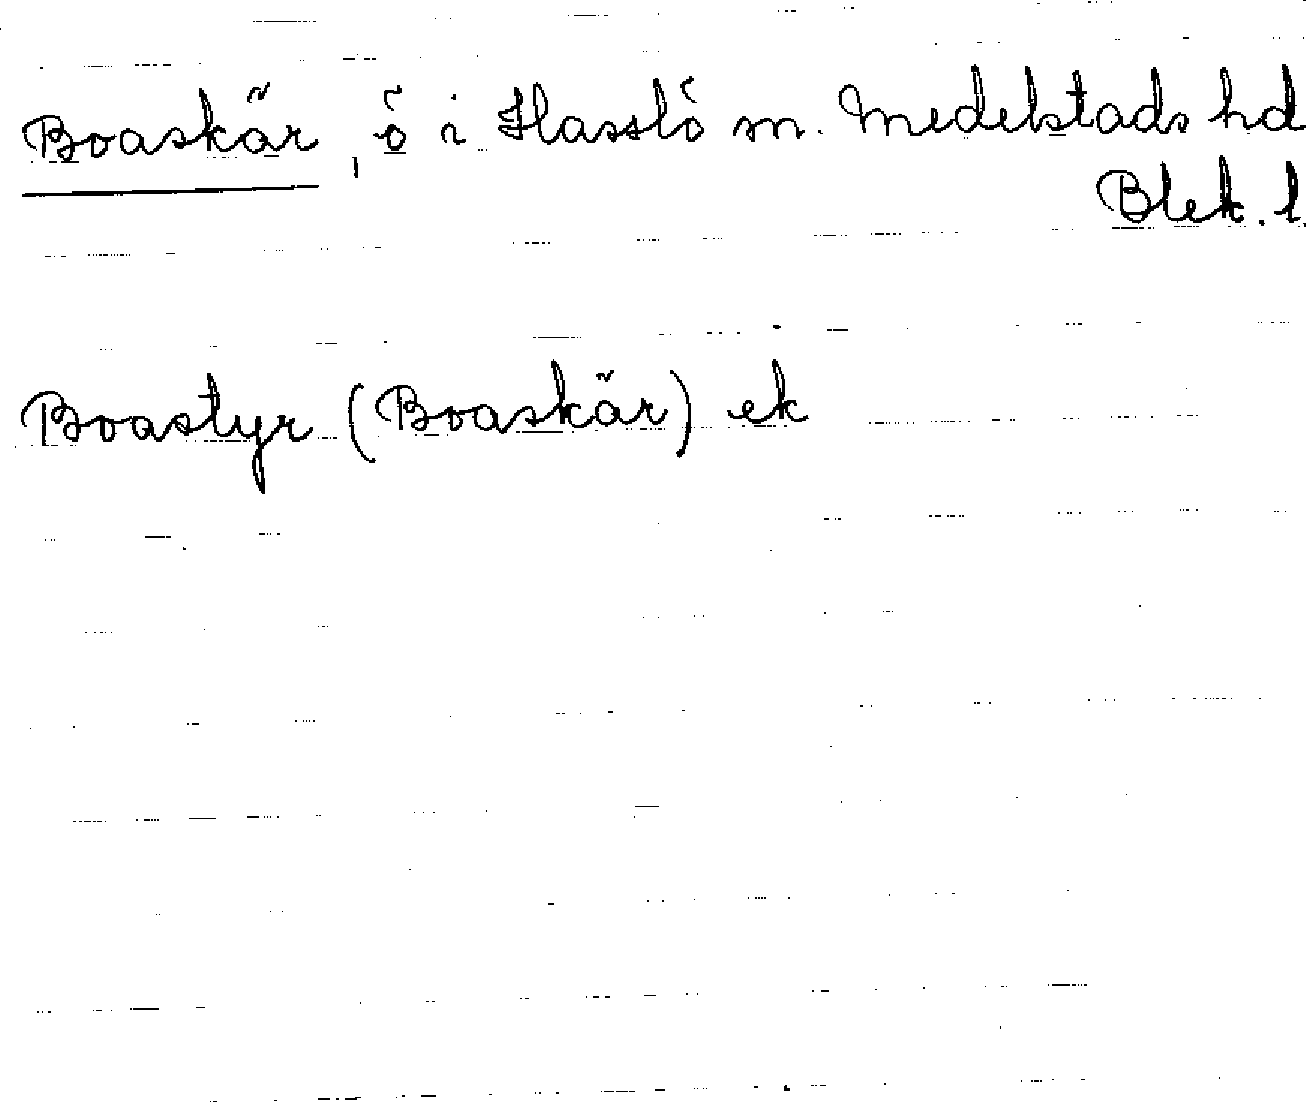 Boaskär, ö i Hasslö sn. Medelstads hd
Blek. l.
Boastyr (Boaskär) ek